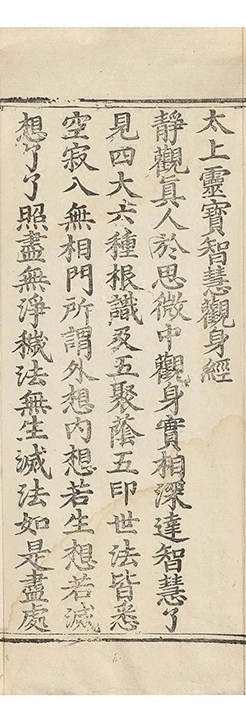 太上靈寶智慧觀身經
靜觀真人於思微中觀身實相深達智慧了
見四大六種根識及五聚蔭五印世法皆悉
空寂入無相門所謂外想內想若生想若滅
想了了照盡無淨穢法無生滅法如是盡處